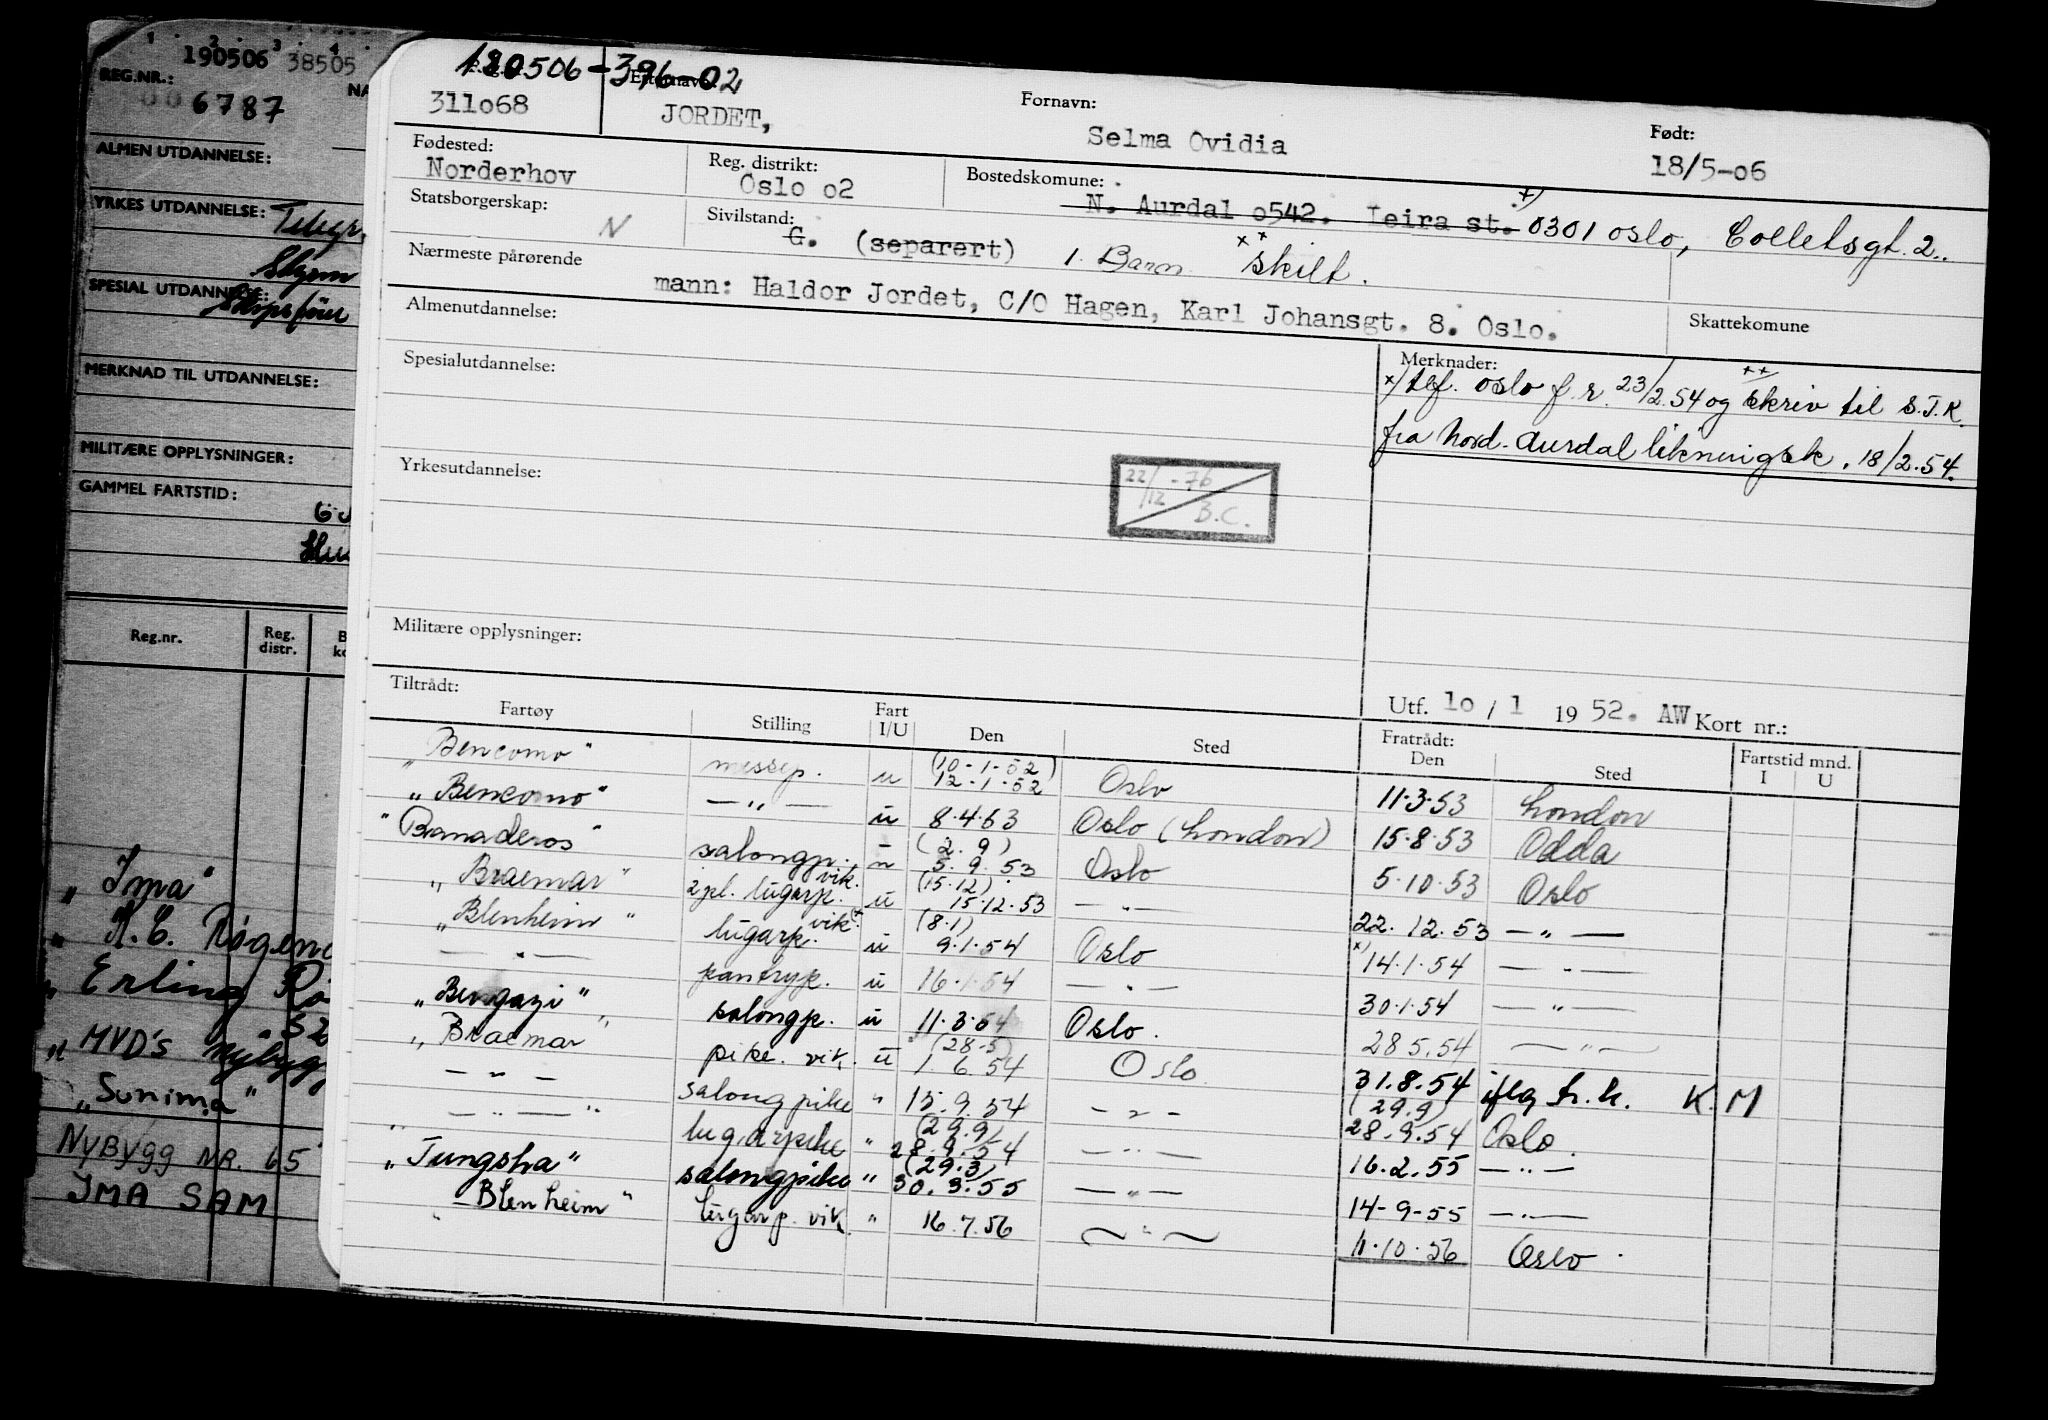 1 · 2 · 3 · 4 ·
190506 38505
REG.NR.:
006787
NA
ALMEN UTDANNELSE:
YRKES UTDANNELSE: Telegr.
SPESIAL UTDANNELSE:
MERKNAD TIL UTDANNELSE:
MILITÆRE OPPLYSNINGER:
GAMMEL FARTSTID:
Reg.nr. Reg. distr.
„ Ima"
„ H. C. Røgen
„ Erling
52
„ MVD's Nybygg
„ Sunima "
NYBYGG NR. 65
IMA SAM
180506-396-02
311o68
JORDET,
Fornavn:
Selma Ovidia
Født:
18/5-o6
Fødested:
Norderhov
Reg. distrikt:
Oslo o2
Bostedskomune:
N. Aurdal o542. Leira st. x) 0301 Oslo, Colletsgt. 2.
Statsborgerskap:
N
Sivilstand:
G. (separert) 1. Barn xx skilt.
Nærmeste pårørende
mann: Haldor Jordet, C/O Hagen, Karl Johansgt. 8. Oslo.
Skattekomune
Almenutdannelse:
Spesialutdannelse:
Merknader:
x) tlf. Oslo f.r. 23/2.54 og xx) skriv til S.J.K.
fra Nord-Aurdal likningsk. 18/2.54.
Yrkesutdannelse:
22/12 -76
B.C.
Militære opplysninger:
Utf. 1o / 1 19 52. AW Kort nr.:
Tiltrådt:
Fartøy Stilling Fart I/U Den Sted Fratrådt: Den Sted Fartstid mnd. I U
„ Bencomo " messep. u (10-1-52) 12-1-52 Oslo 11.3.53 London
„ Bencomo " — „ — u 8.4.53 Oslo (London) 15.8.53 Odda
" Banaderos " salongp. u (2.9) 5.9.53 Oslo 5.10.53 Oslo
„ Braemar " 2 pl. lugarp. vik. u (15.12) 15.12.53 — „ — 22.12.53 — „ —
„ Blenheim " lugarp. vik. u (8.1) 9.1.54 Oslo x) 14.1.54 — „ —
— „ — pantryp. u 16.1.54 — „ — 30.1.54 — „ —
„ Bengazi " salongp. u 11.3.54 Oslo. 28.5.54 — „ —
„ Braemar " pike. vik. u (28-5) 1.6.54 Oslo 31.8.54 iflg h.k. K.M
— „ — salongpike " 15.9.54 — „ — (29.9) 28.9.54 Oslo.
— „ — lugarpike " (29.9) 28.9.54 — „ — 16.2.55 — „ —
„ Tungsha " salongpike " (29.3) 30.3.55 — „ — 14-9-55 — „ —
„ Blenheim " lugarp. vik. " 16.7.56 — „ — 11.10.56 Oslo